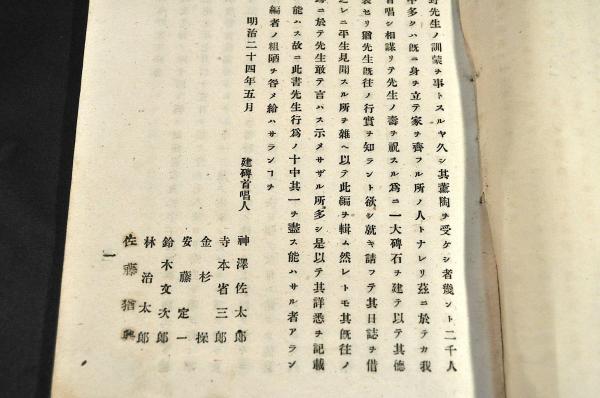 先生ノ訓蒙ヲ事トスルヤ久シ其薫陶ヲ受ケシ者幾ント二千人
多クハ既ニ身ヲ立テ家ヲ齊フル所ノ人トナレリ茲ニ於テカ我
首唱シ相謀リテ先生ノ壽ヲ祝スル爲ニ一大碑石ヲ建テ以テ其德
セリ猶先生既往ノ行實ヲ知ラント欲シ就キ請フテ其日誌ヲ借
レニ平生見聞スル所ヲ雜ヘ以テ此編ヲ輯ム然レトモ其既往ノ
ニ於テ先生敢テ言ハス示メサザル所多シ是以テ其詳悉ヲ記載
能ハス故ニ此書先生行爲ノ十中其一ヲ盡ス能ハサル者アラン
編者ノ粗陋ヲ咎メ給ハサランコヲ
明治二十四年五月
建碑首唱人
神澤佐太郎
寺本省三郎
金杉操
安藤定一
鈴木文次郎
林治太郎
佐藤猶興
一